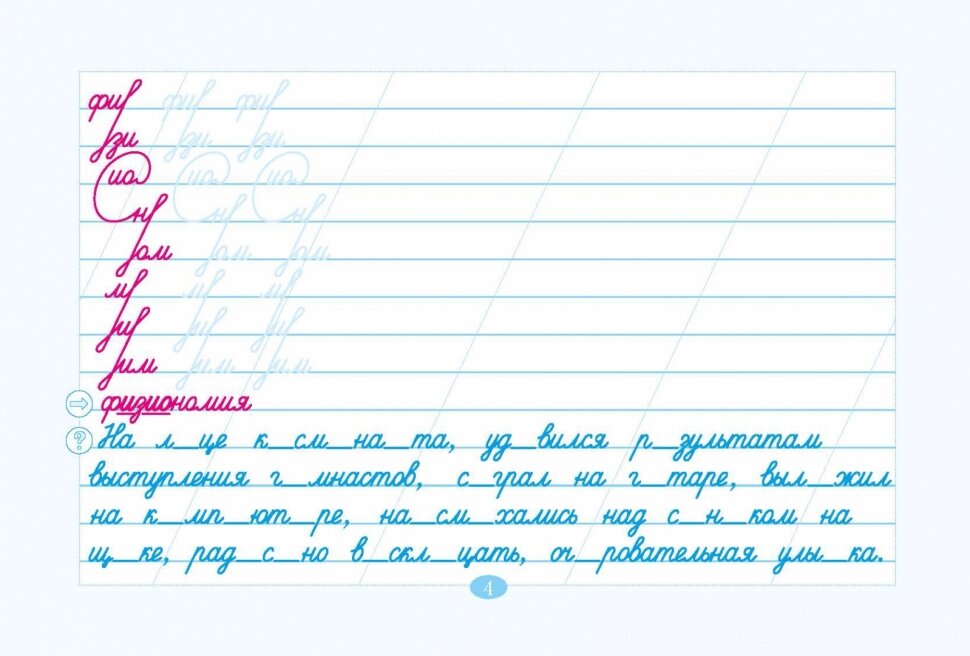 фи фи фи
зи зи зи
ио ио ио
н н н
ом ом ом
им им им
физиономия
? На л_це к_см_на_та, уд_вился р_зультатам
выступления г_мнастов, с_грал на г_таре, выл_жил
на к_мп_ют_ре, на_см_хались над с_н_ком на
щ_ке, рад_с_но в_скл_цать, оч_ровательная улы_ка.
4